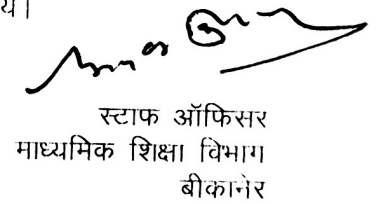 य।
स्टाफ ऑफिसर
माध्यमिक शिक्षा विभाग
बीकानेर